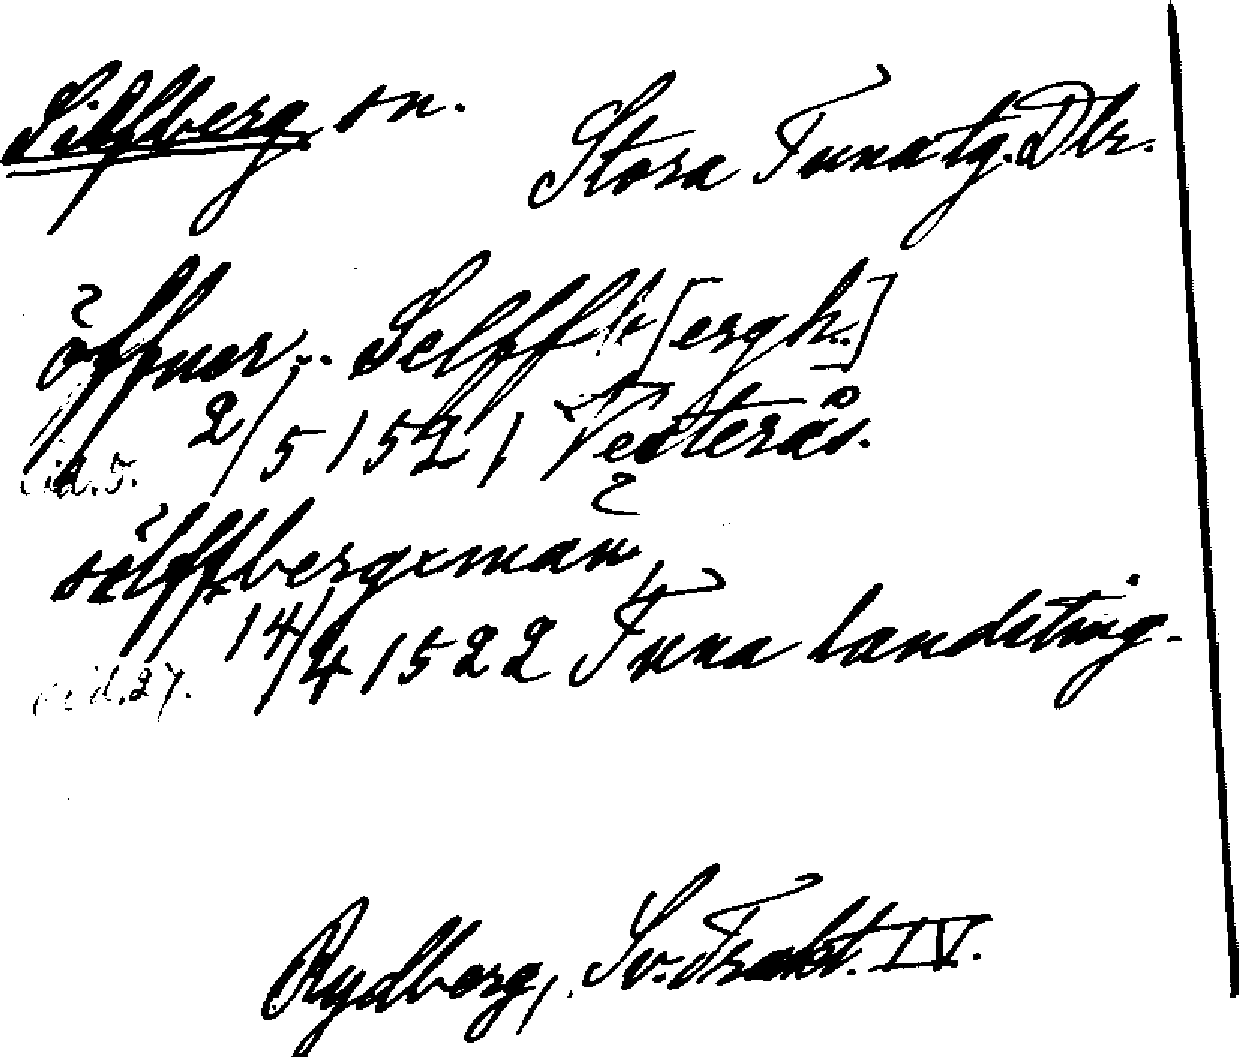 Silfberg sn. Stora Tuna tg. Dlr.
öffuer.. Selffb[ergh.]
2/5 1521 Vesterås.
sid. 5.
sölffbergxman
14/4 1522 Tuna landsting.
sid. 27.
Rydberg, Sv. Trakt. IV.